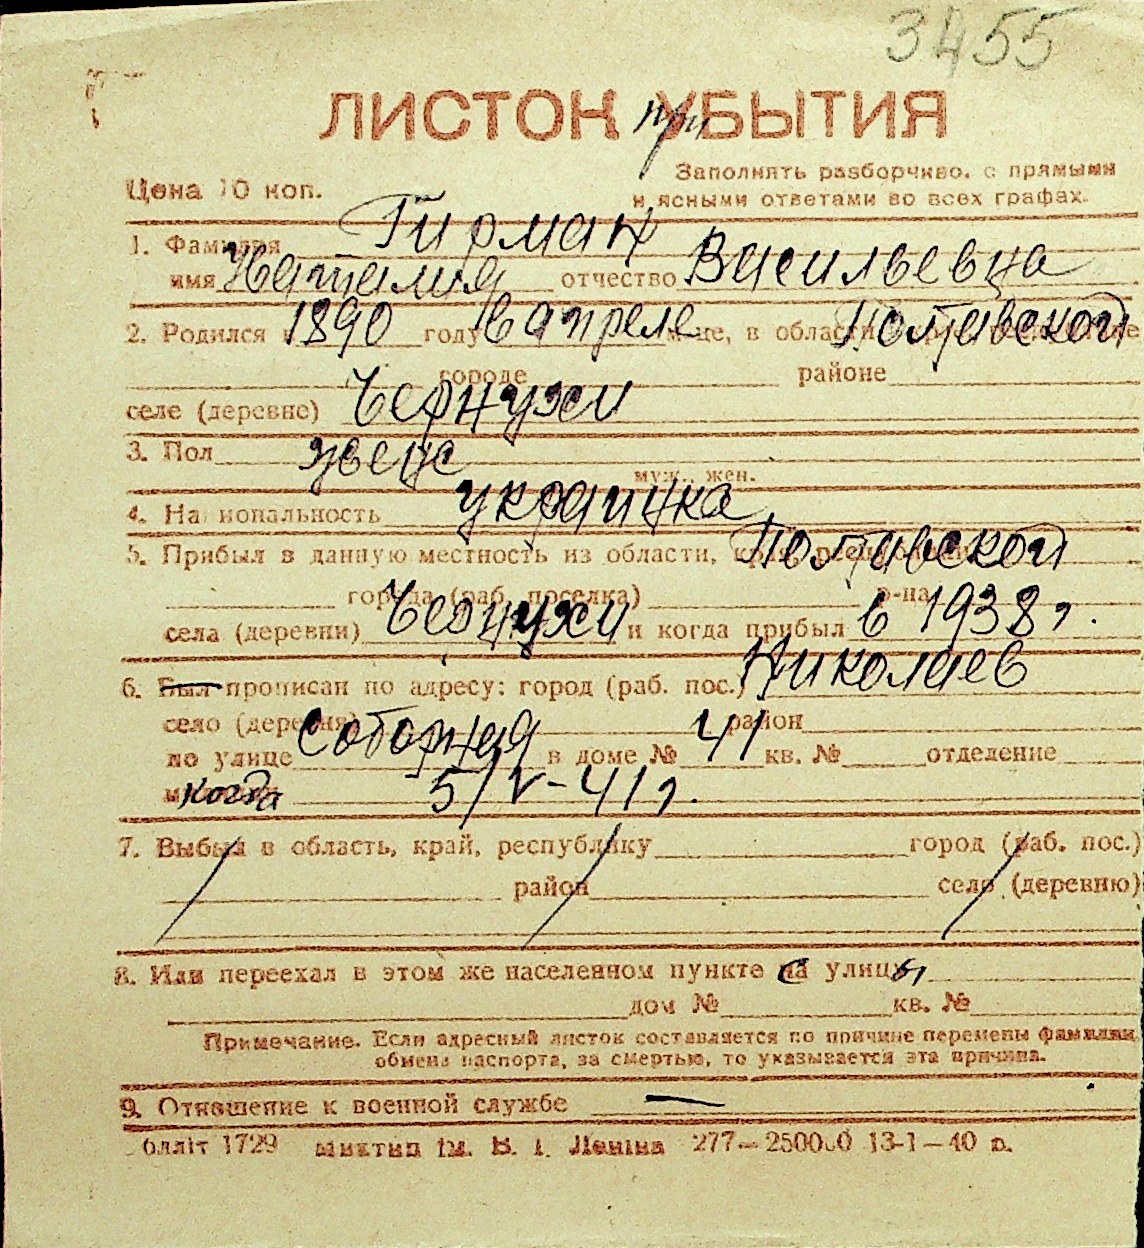 3455
ЛИСТОК при УБЫТИЯ
Цена 10 коп. Заполнять разборчиво, с прямыми
и ясными ответами во всех графах.
1. Фамилия Гирман
имя Наталия отчество Васильевна
2. Родился в 1890 году в апреле м-це, в области Полтавской
городе районе
селе (деревне) Чернухи
3. Пол женс
муж. жен.
4. Национальность украинка
5. Прибыл в данную местность из области, края, Полтавской
города (раб. поселка) р-на
села (деревни) Чернухи и когда прибыл в 1938 г.
6. Был прописан по адресу: город (раб. пос.) Николаев
село (деревня) район
по улице Соборная в доме № 41 кв. № отделение
когда 5/V-41 г.
7. Выбыл в область, край, республику город (раб. пос.)
район село (деревню)
8. Или переехал в этом же населенном пункте с улицы
дом № кв. №
Примечание. Если адресный листок составляется по причине перемены фамилии,
обмена паспорта, за смертью, то указывается эта причина.
9. Отношение к военной службе —
блліт 1729 ім. В. І. Леніна 277—250000 13-1—40 р.